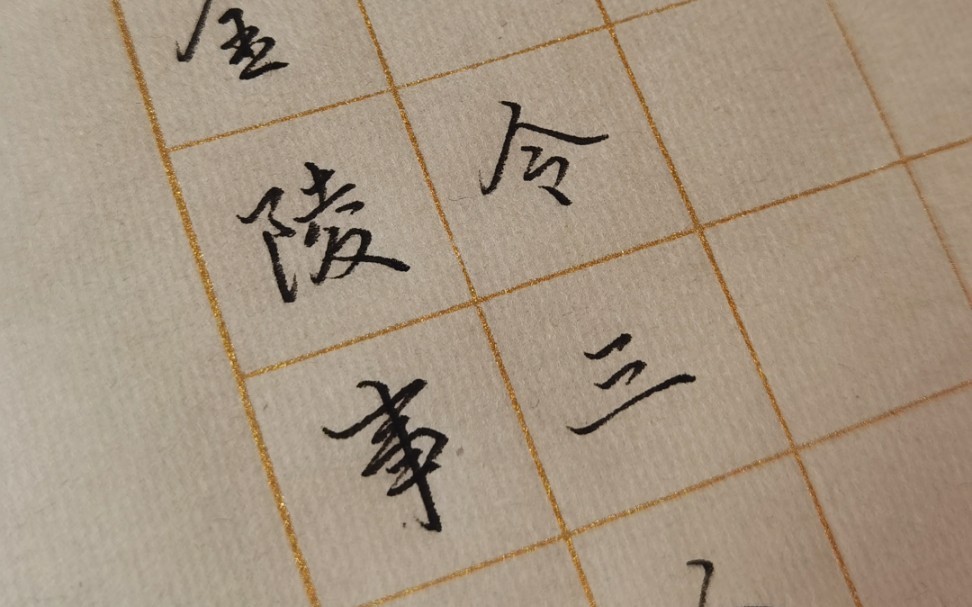 令三
金陵事